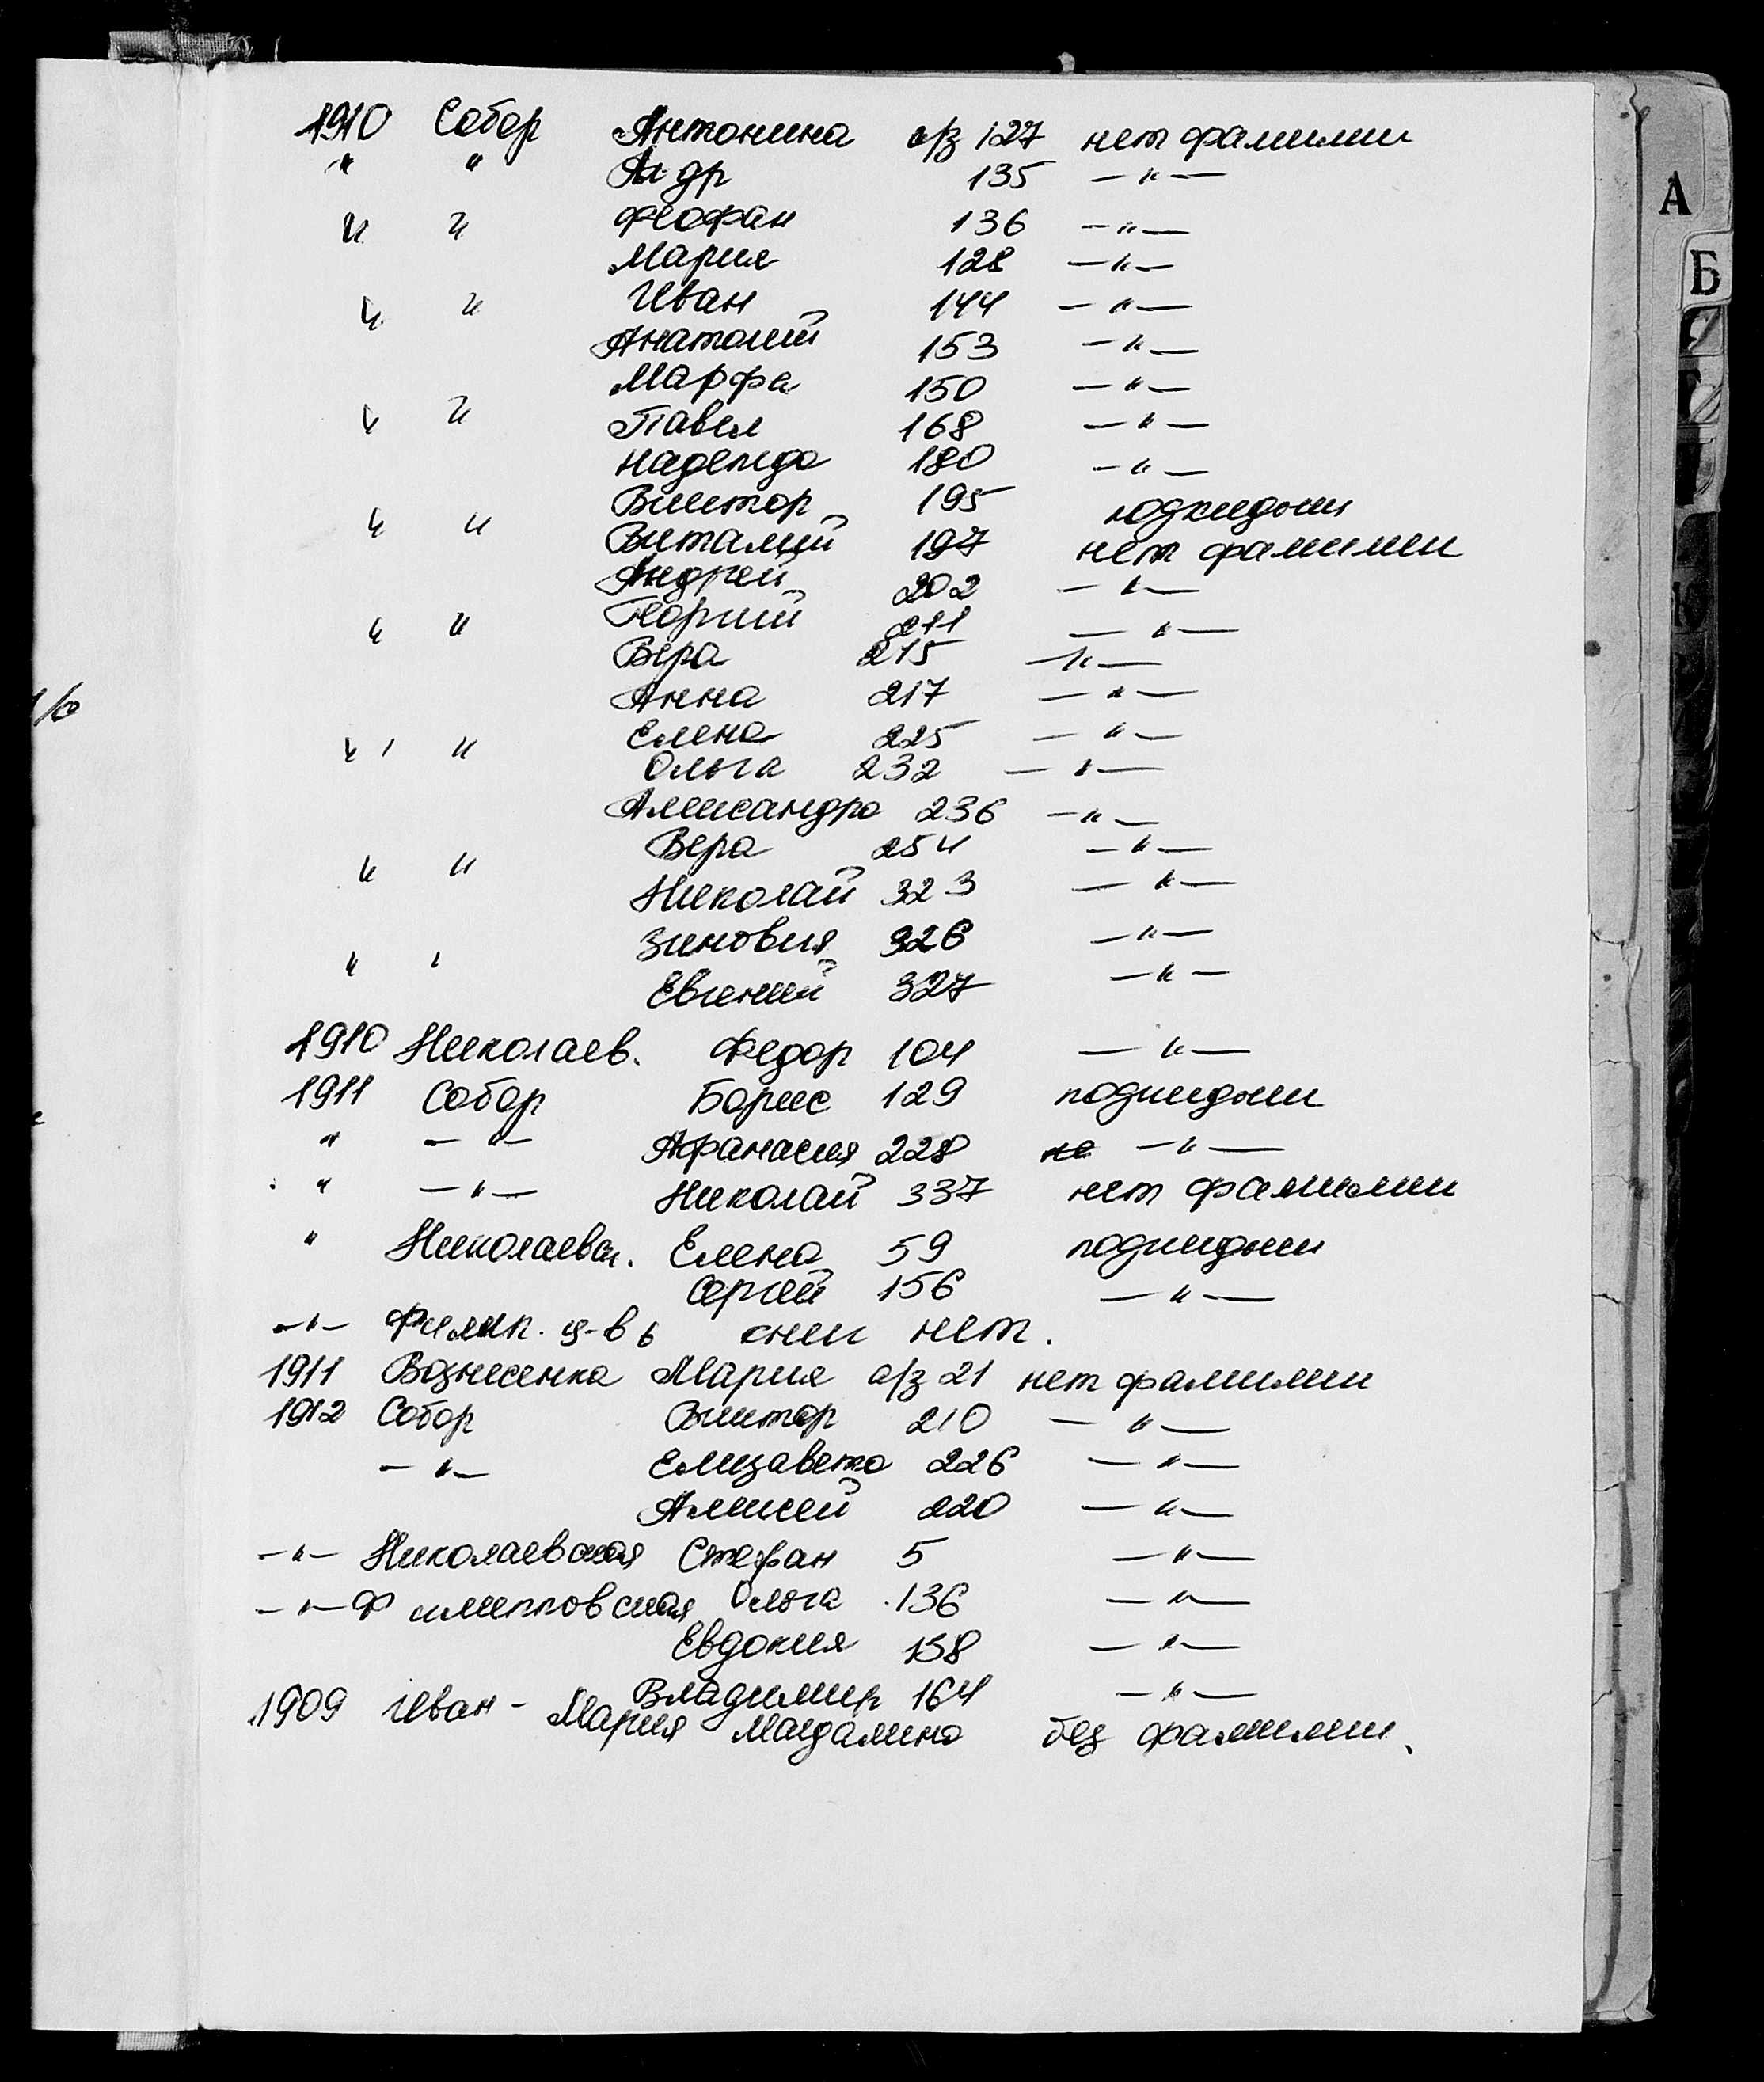 1910 Собор Антонина а/з 127 нет фамилии
" " Ал др 135 — " —
" " Феофан 136 — " —
Мария 128 — " —
" " Иван 144 — " —
Анатолий 153 — " —
Марфа 150 — " —
" " Павел 168 — " —
Надежда 180 — " —
Виктор 195 подкидыш
" " Виталий 197 нет фамилии
Андрей 202 — " —
" " Георгий 211 — " —
Вера 215 — " —
Анна 217 — " —
" " Елена 225 — " —
Ольга 232 — " —
Александра 236 — " —
Вера 254 — " —
" " Николай 323 — " —
Зиновия 326 — " —
" " Евгений 327 — " —
1910 Николаев. Федор 104 — " —
1911 Собор Борис 129 подкидыш
" — " — Афанасия 228 не — " —
" — " — Николай 337 нет фамилии
" Николаевск. Елена 59 подкидыш
Сергей 156 — " —
— " — Филип. ц-вь книг нет.
1911 Вознесенка Мария а/з 21 нет фамилии
1912 Собор Виктор 210 — " —
— " — Елизавета 226 — " —
Алексей 220 — " —
— " — Николаевская Стефан 5 — " —
— " — Филипповская Ольга 136 — " —
Евдокия 158 — " —
Владимир 164 — " —
1909 Иван - Мария Магдалина без фамилии.
А
Б